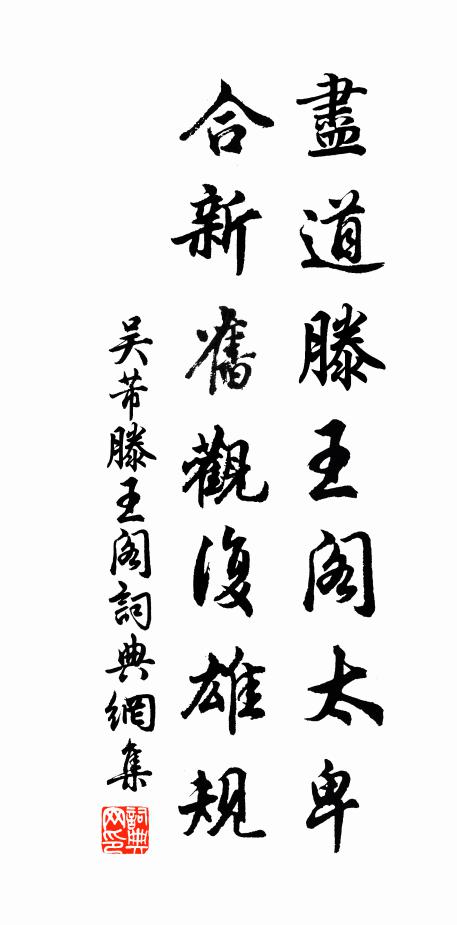 盡道滕王閣太卑
合新舊觀復雄規
吳芾滕王閣詞典網集
詞典網印